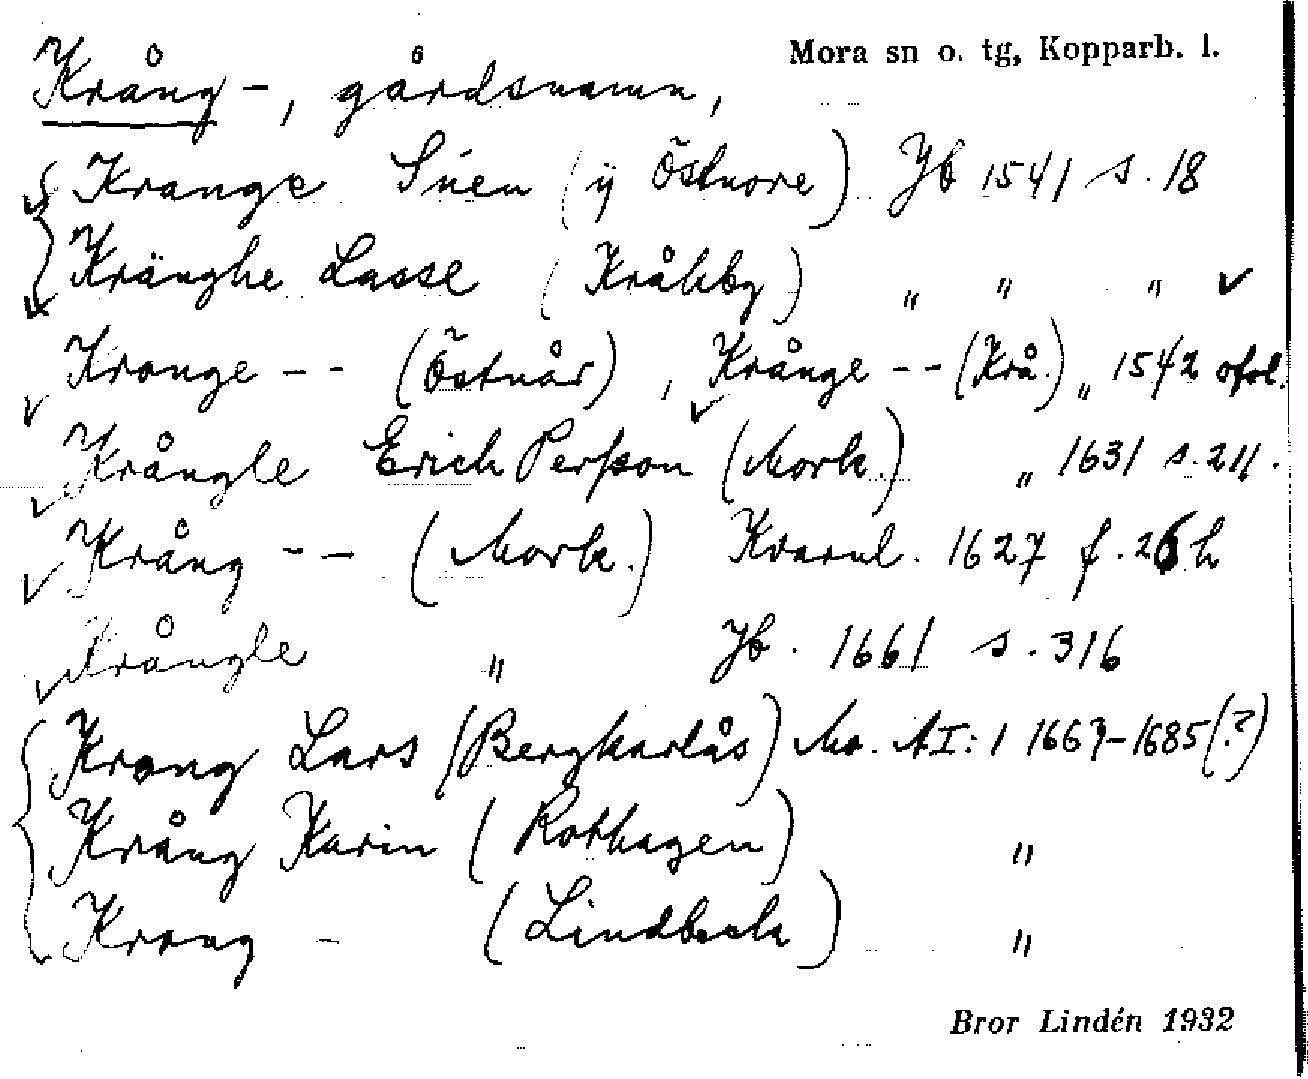 Mora sn o. tg, Kopparb. l.
Krång-, gårdsnamn,
Krange Suen (ij Östnore) Jb 1541 s. 18
Kränghe Lasse (Kråkby) " " "
Krange -- (Östnår), Krånge -- (Krå.) " 1542 ofol.
Krångle Erich Persson (Mork.) " 1631 s. 211.
Krång -- (Mork.) Kvarnl. 1627 f. 26 b
Krångle " Jb. 1661 s. 316
Krang Lars (Bergkarlås) Mo. AI:1 1667-1685(?)
Krång Karin (Rothagen) "
Krang - (Lindbeck) "
Bror Lindén 1932